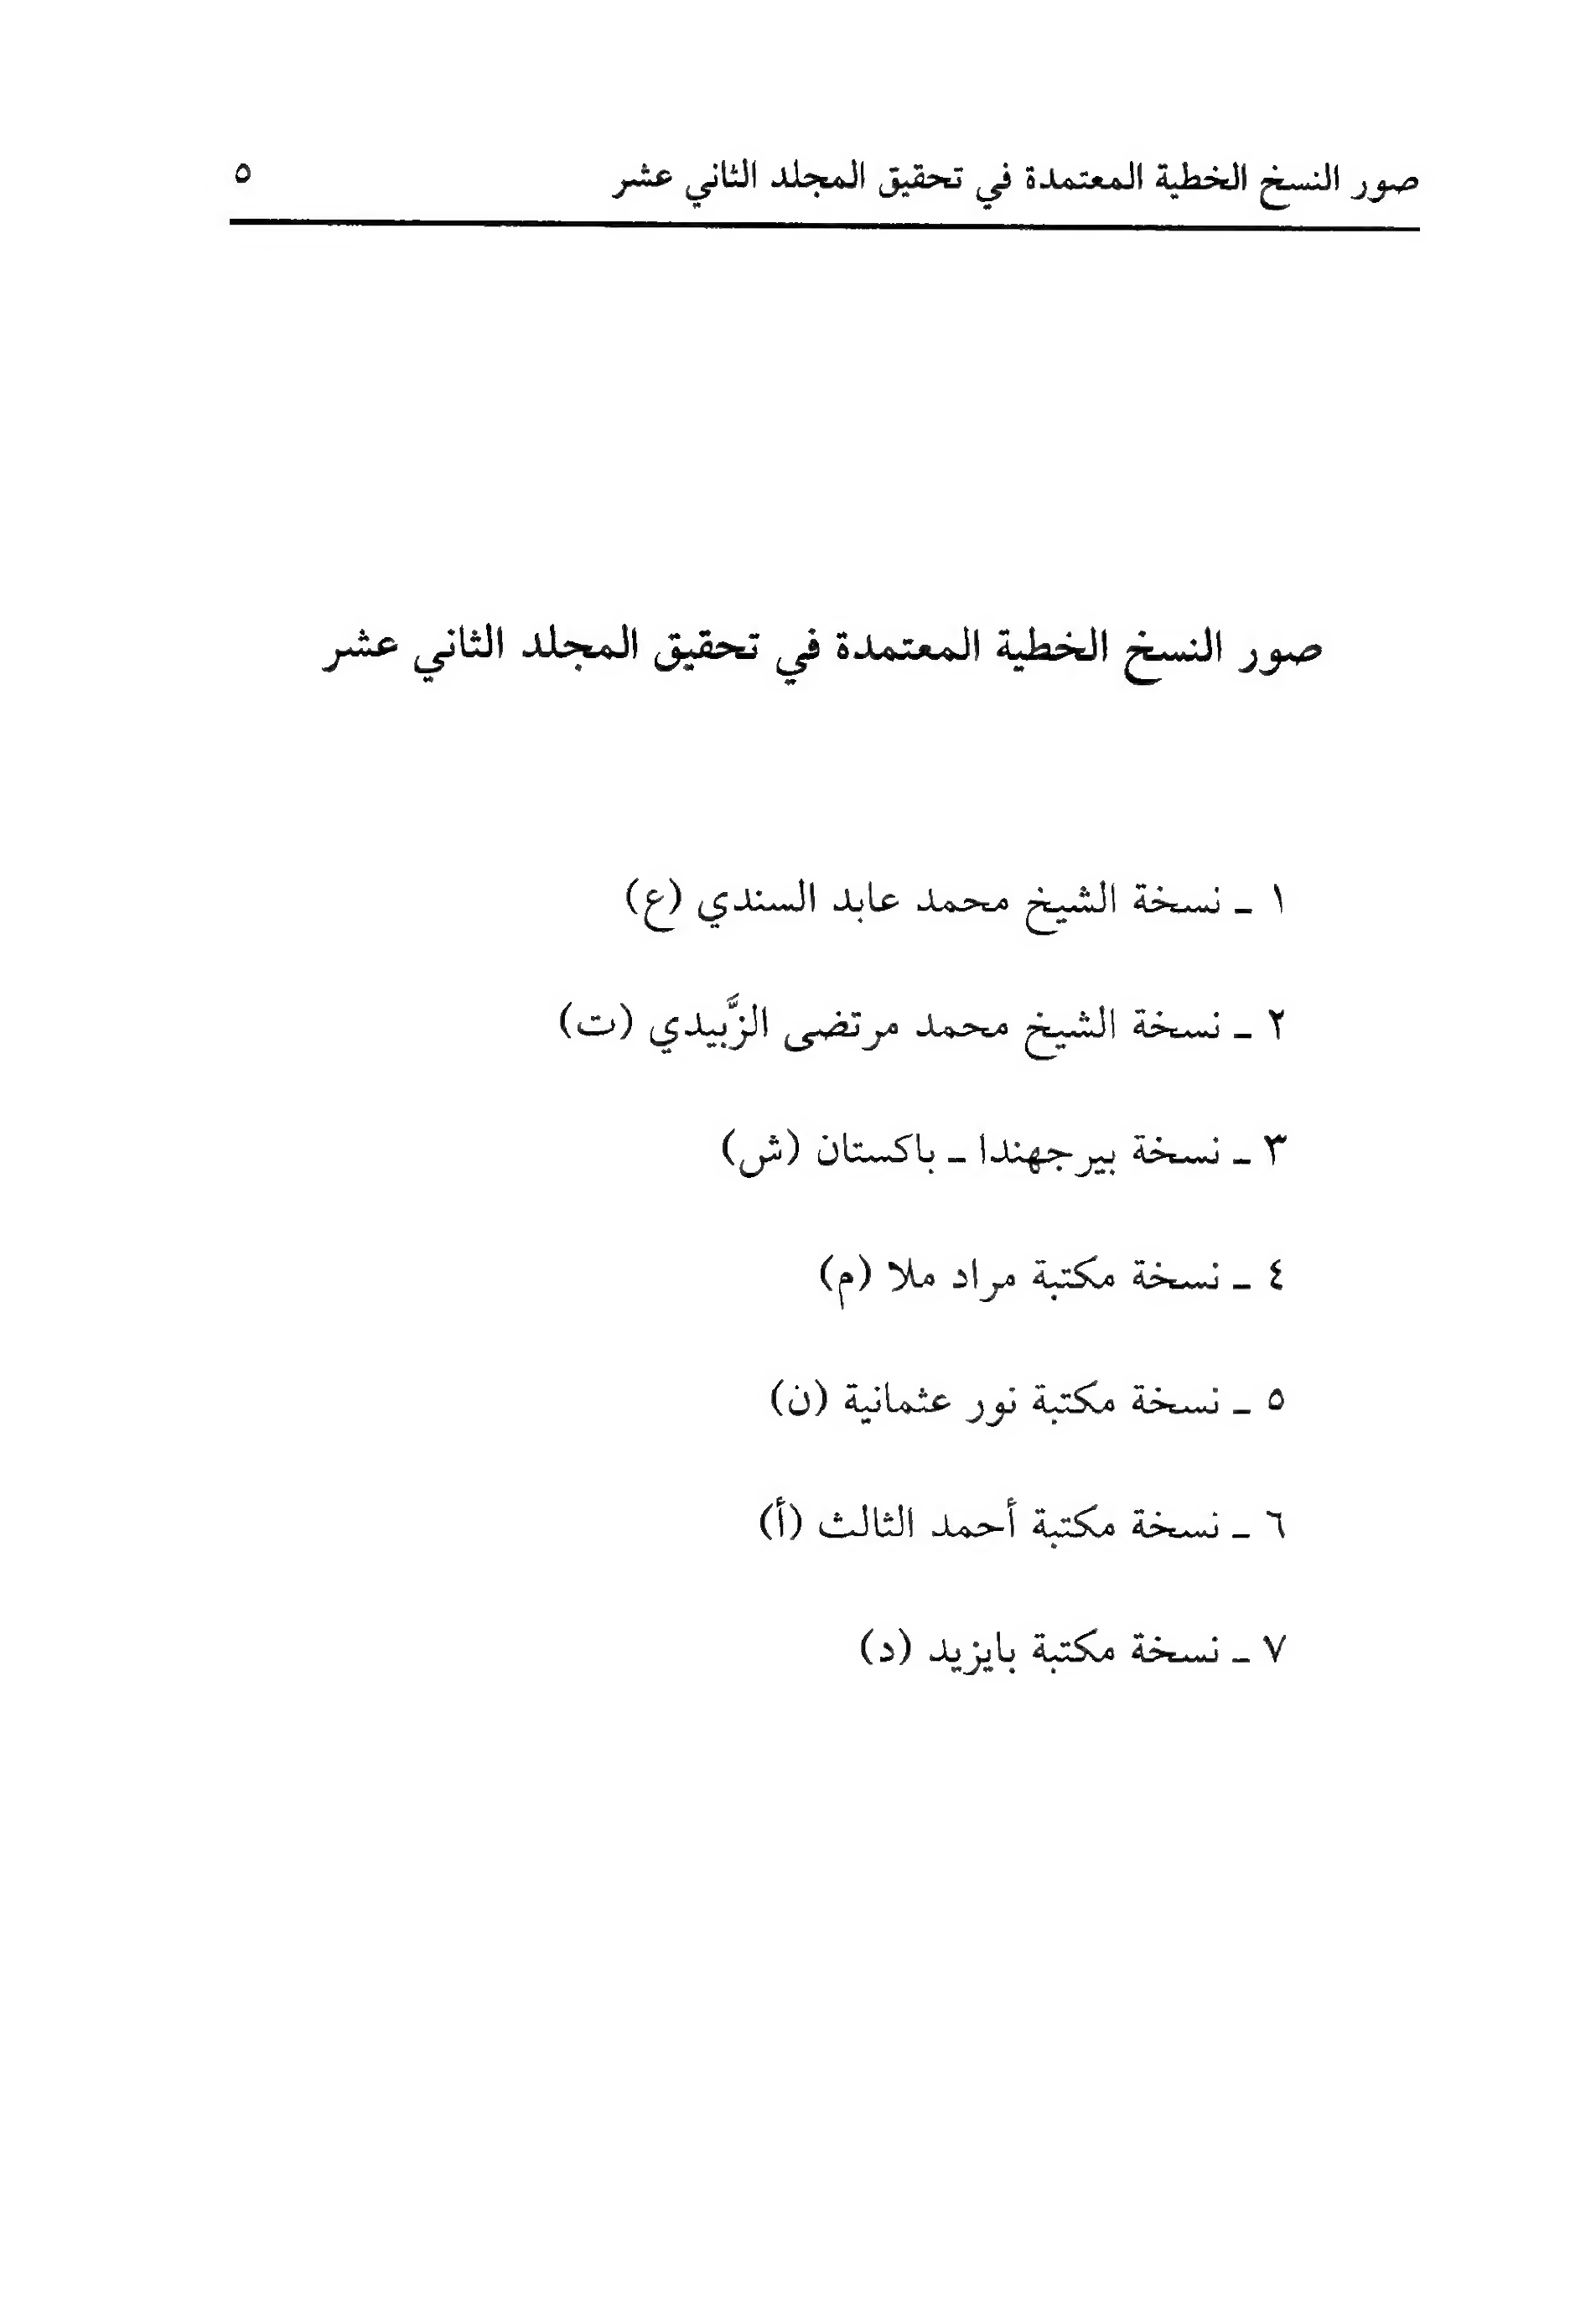 صور النسخ الخطية المعتمدة في تحقيق المجلد الثاني عشر ٥
صور النسخ الخطية المعتمدة في تحقيق المجلد الثاني عشر
١ ـ نسخة الشيخ محمد عابد السندي (ع)
٢ ـ نسخة الشيخ محمد مرتضى الزَّبيدي (ت)
٣ ـ نسخة بيرجهندا ـ باكستان (ش)
٤ ـ نسخة مكتبة مراد ملا (م)
٥ ـ نسخة مكتبة نور عثمانية (ن)
٦ ـ نسخة مكتبة أحمد الثالث (أ)
٧ ـ نسخة مكتبة بايزيد (د)